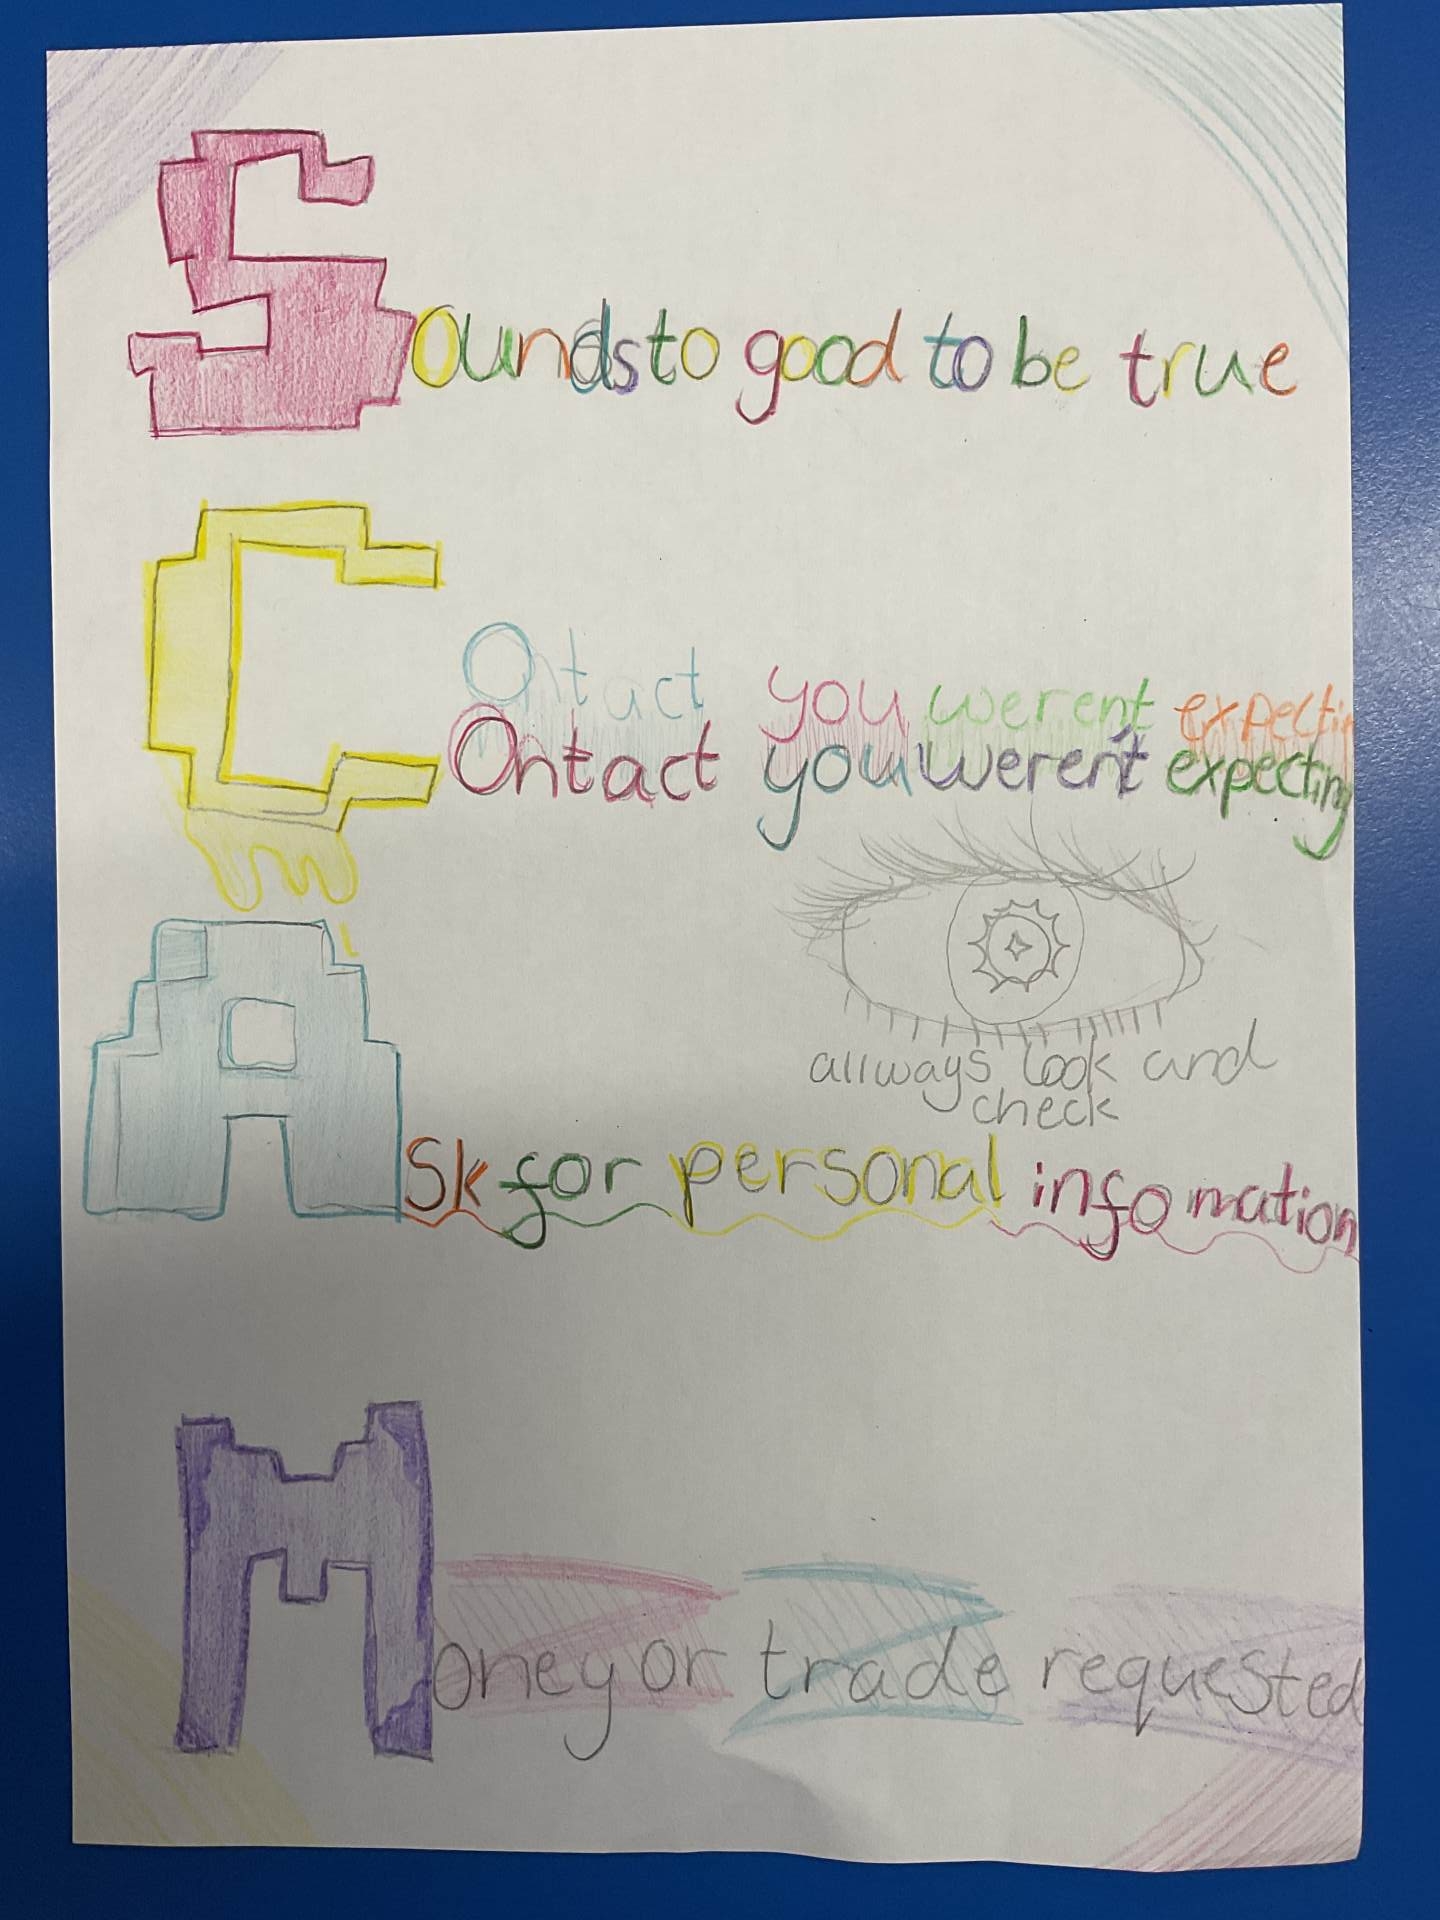 Sounds to good to be true
Contact you werent expecting
Ontact you werent expecting
allways look and
check
Ask for personal infomation
Money or trade requested